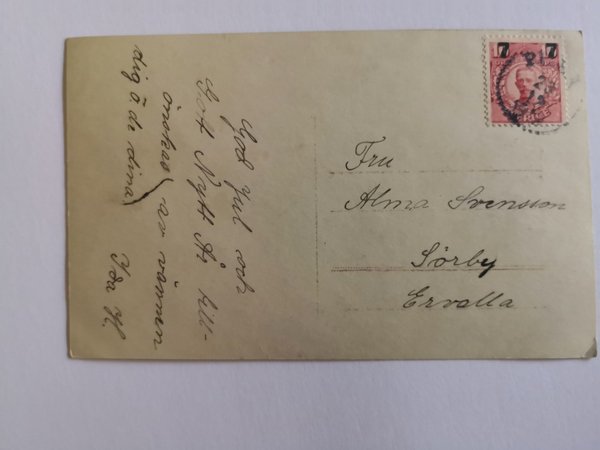 God Jul och
Gott Nytt År till-
önskas av vännen
dig o de dina
Ida H.
7 7
SVERIGE
Fru
Alma Svensson
Sörby
Ervalla